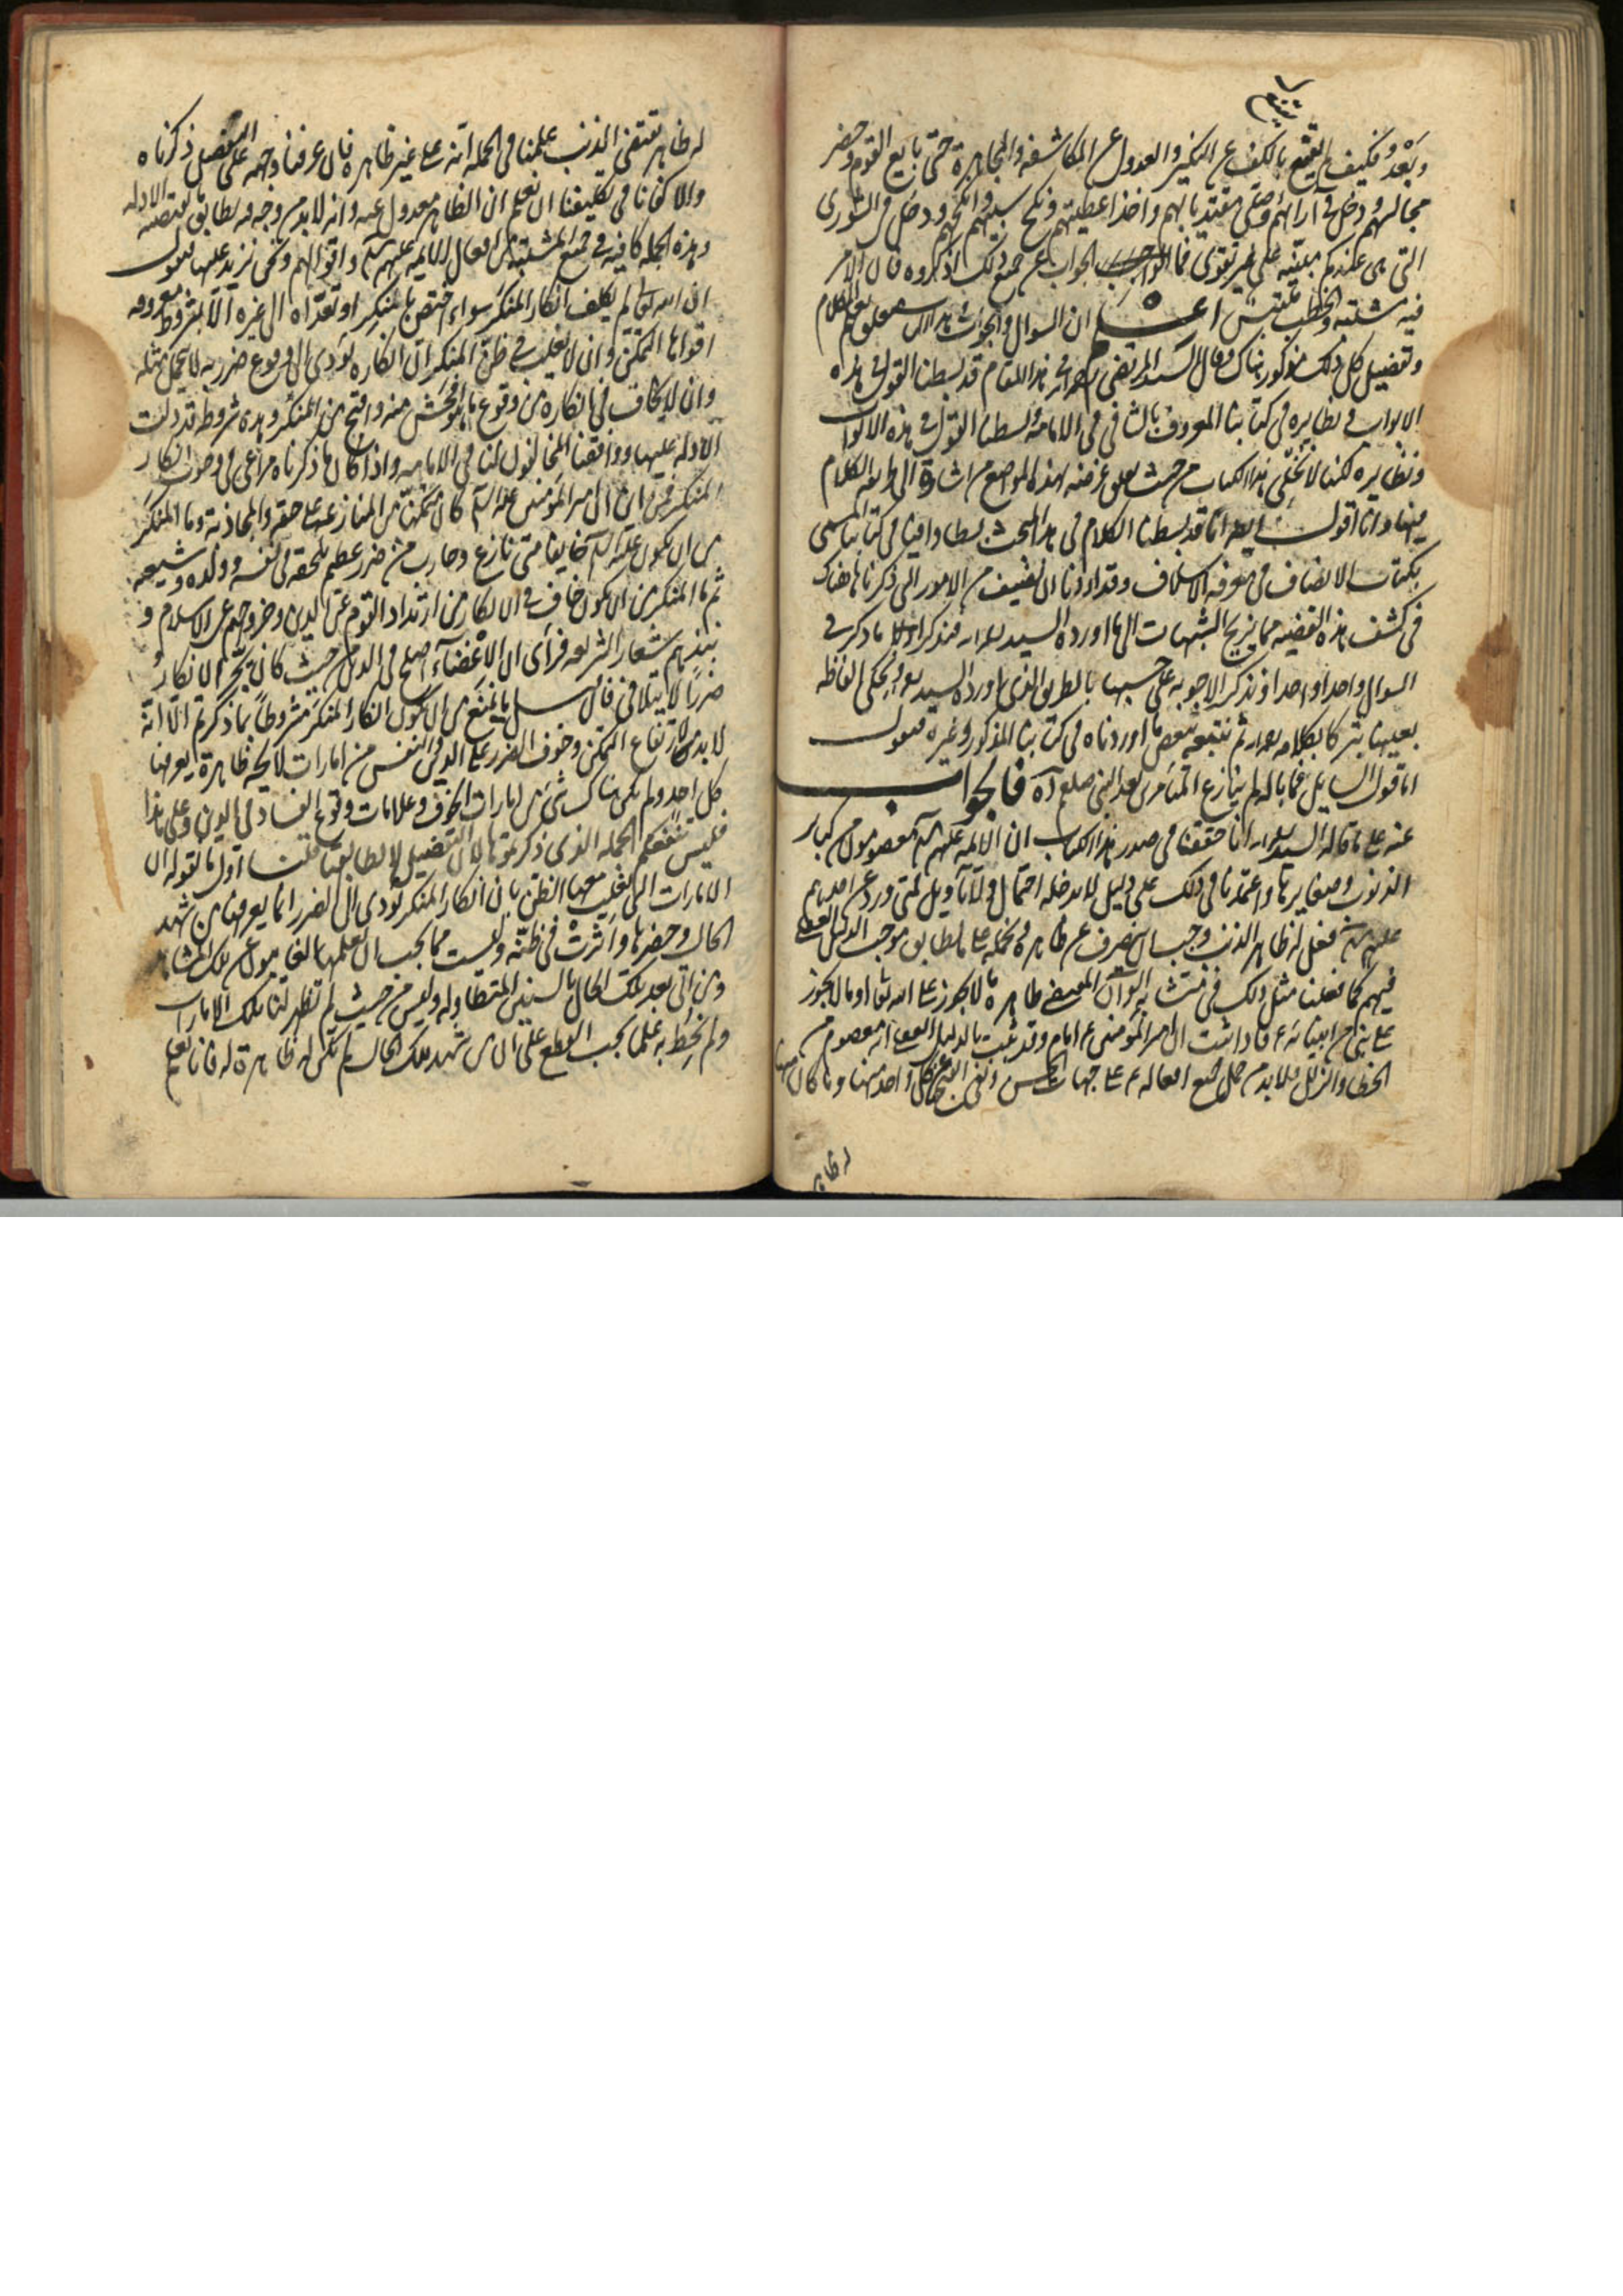 وبعد فكيف لم يقنع بالكف عن النكير والعدول عن المكاشفة والمجاهرة حتى بايع القوم وحضر
مجالسهم ودخل في آرائهم وصلى مقتديا بهم واخذ اعطيتهم ونكح سبيهم وانكحهم ودخل في الشورى
التي هي عندكم مبنية على غير تقوى فما الجواب عن جميع ذلك اذكروه فان الامر
فيه مشتبه والخطب ملتبس اعلم ان السؤال والجواب
وتفصيل كل ذلك مذكور هناك وقال السيد المرتضى في هذا المقام قد بسطنا القول في هذه
الابواب ونظايره في كتابنا المعروف بالشافي في الامامة وبسطنا القول في هذه الابواب
ونظايره لكنا لا نخلي هذا الكتاب من حيث تعلق غرضنه بهذه المواضع من اشارة الى طريقة الكلام
فيها وانا اقول ايضا انا قد بسطنا الكلام في هذا المبحث بسطا وافيا في كتابنا المسمى
بكتاب الانصاف في معرفة الاسلاف وقد اردنا ان نضيف من الامور التي ذكرناها هناك
في كشف هذه القضية مما يزيح الشبهات التي اورده السيد فنذكر اولا ما ذكر في
السؤال واحدا واحدا ونذكر الاجوبة على حسبها بالطريق الذي اورده السيد ونحكي الفاظه
بعينها تبركا بكلامه ثم نتبعه ببعض ما اوردناه في كتابنا المذكور وغيره فنقول
اما قول السايل فما باله لم ينازع المتأمرين بعد النبي صلعم اه فالجواب
عنه على ما قاله السيد انا حققنا في صدر هذا الكتاب ان الائمة عليهم السلام معصومون من كبار
الذنوب وصغايرها واعتمدنا في ذلك على دليل لا يدخله احتمال ولا تأويل فمتى ورد عن احدهم
عليهم السلام فعل له ظاهر الذنب وجب ان نصرف عن ظاهره ونحمله على ما يطابق موجب الدليل العقلي
فيهم كما فعلنا مثل ذلك في متشابه القرآن المقتضي ظاهره ما لا يجوز على الله تعالى وما لا يجوز
على نبي من انبيائه ع فاذا ثبت ان امير المؤمنين ع امام وقد ثبت بالدليل العقلي انه معصوم من
الخطأ والزلل فلا بد من حمل جميع افعاله ع على جهات الحسن ونفي القبيح عن كل واحد منها وما كان منها
له ظاهر
له ظاهر يقتضي الذنب علمنا في الجملة انه على غير ظاهره فان عرفنا وجهه على التفصيل ذكرناه
والا كفانا في تكليفنا ان نعلم ان الظاهر معدول عنه وانه لا بد من وجه فيه يطابق ما تقتضيه الادلة
وهذه الجملة كافية في جميع المشتبه من افعال الائمة عليهم السلام واقوالهم ونحن نزيد عليها فنقول
ان الله تعالى لم يكلف انكار المنكر سواء اختص بالمنكر او تعداه الى غيره الا بشروط معروفة
اقواها التمكن وان لا يغلب في ظن المنكر ان انكاره يؤدي الى وقوع ضرر به لا يحتمل مثله
وان لا يخاف في انكاره من وقوع ما هو افحش منه واقبح من المنكر وهذه شروط قد دلت
الادلة عليها ووافقنا المخالفون لنا في الامامة واذا كان ما ذكرناه مراعى في وجوب انكار
المنكر فمن اين ان امير المؤمنين عليه السلام كان متمكنا من المنازعة على حقه والمجاذبة وما المنكر
من ان يكون عليه السلام خايفا متى نازع وحارب من ضرر عظيم يلحقه في نفسه وولده وشيعته
ثم ما المنكر من ان يكون خاف في الانكار من ارتداد القوم عن الدين وخروجهم عن الاسلام و
نبذهم شعار الشريعة فرأى ان الاغضاء اصلح في الدين من حيث كان يجر الانكار
ضررا لا يتلافى فان قيل ما يمنع من ان يكون انكار المنكر مشروطا بما ذكرتم الا انه
لا بد لارتفاع التمكن وخوف الضرر على الدين والنفس من امارات لايحة ظاهرة يعرفها
كل احد ولم يكن هناك شيء من امارات الخوف وعلامات وقوع الفساد في الدين وعلى هذا
فليس تنفعكم الجملة الذي ذكرتموها لان التفصيل لا يطابقها قلنا اول ما نقوله ان
الامارات التي يغلب معها الظن بان انكار المنكر يؤدي الى الضرر انما يعرفها من شهد
الحال وحضرها واثرت في ظنه وليست مما يجب ان يعلمها الغايبون عن تلك المشاهدة
ومن اتى بعد تلك الحال بالسنين المتطاولة وليس من حيث لم تظهر لنا تلك الامارات
ولم نحط به علما يجب القطع على ان من شهد تلك الحال لم تكن له ظاهرة له فانا نعلم